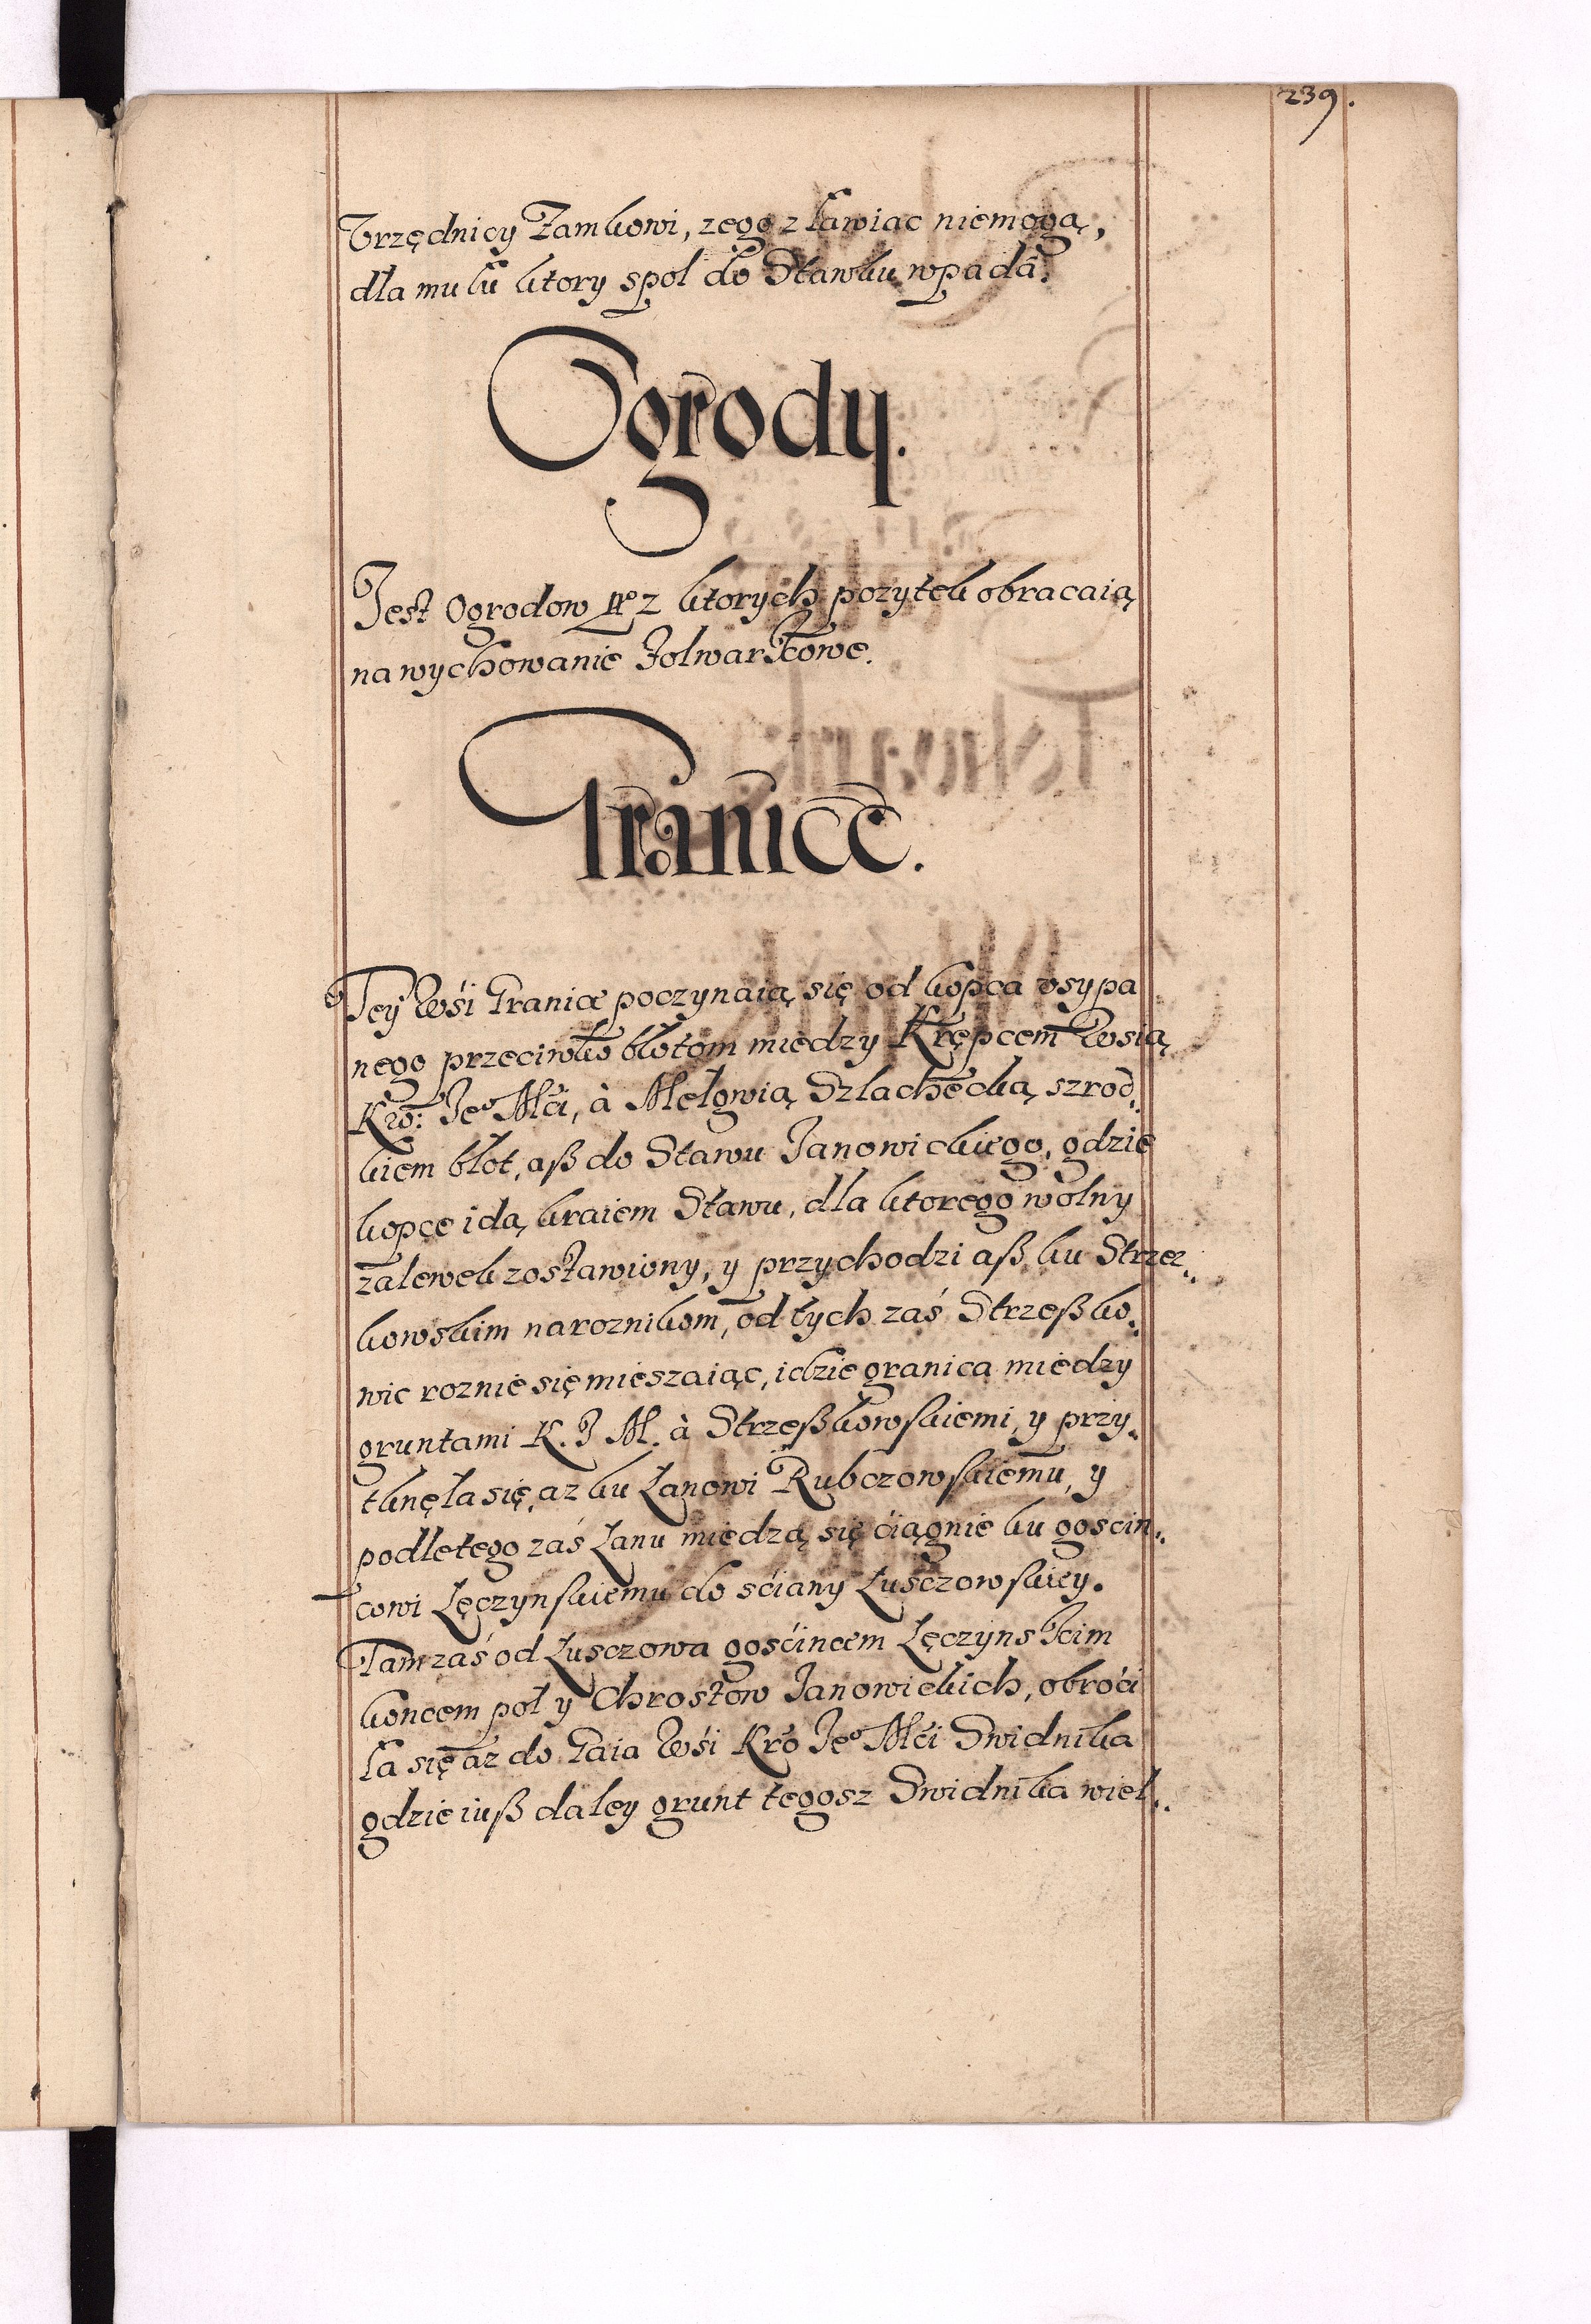 239.
Vrzędnicy Zamkowi, zego zławiac niemogą,
dla mułu ktory społ do Stawku wpada.
Ogrody.
Jest Ogrodow z ktorych pozytek obracaią
na wychowanie folwarkowe.
Granice.
Tey Wśi Granice poczynaią się od kopca vsypa
nego przeciwko błotom miedzy Krępcem Wsią
Kro: Jeº Mći, à Mełgwią Szlachecką, szrod„
kiem błot, aß do Stawu Janowickiego, gdzie
kopce idą kraiem Stawu, dla ktorego wolny
zalewek zostawiony, y przychodzi aß ku Strzez„
kowskim naroznikom, od tych zaś Strzeßko„
wic roznie się mieszaiąc, idzie granica miedzy
gruntami K. J M. à Strzeßkowskiemi, y przy„
tknęła się, az ku Łanowi Rubczowskiemu, y
podle tego zaś Łanu miedzą się ćiągnie ku gosćin„
cowi Łęczynskiemu do sćiany Łuszczowskiey.
Tam zaś od Łusczowa gosćincem Łęczynskim
koncem pol y Chrostow Janowickich, obróći
ła się az do Gaia Wśi Kro Jeº Mći Swidnika
gdzie iuß daley grunt tegosz Swidnika wiel„